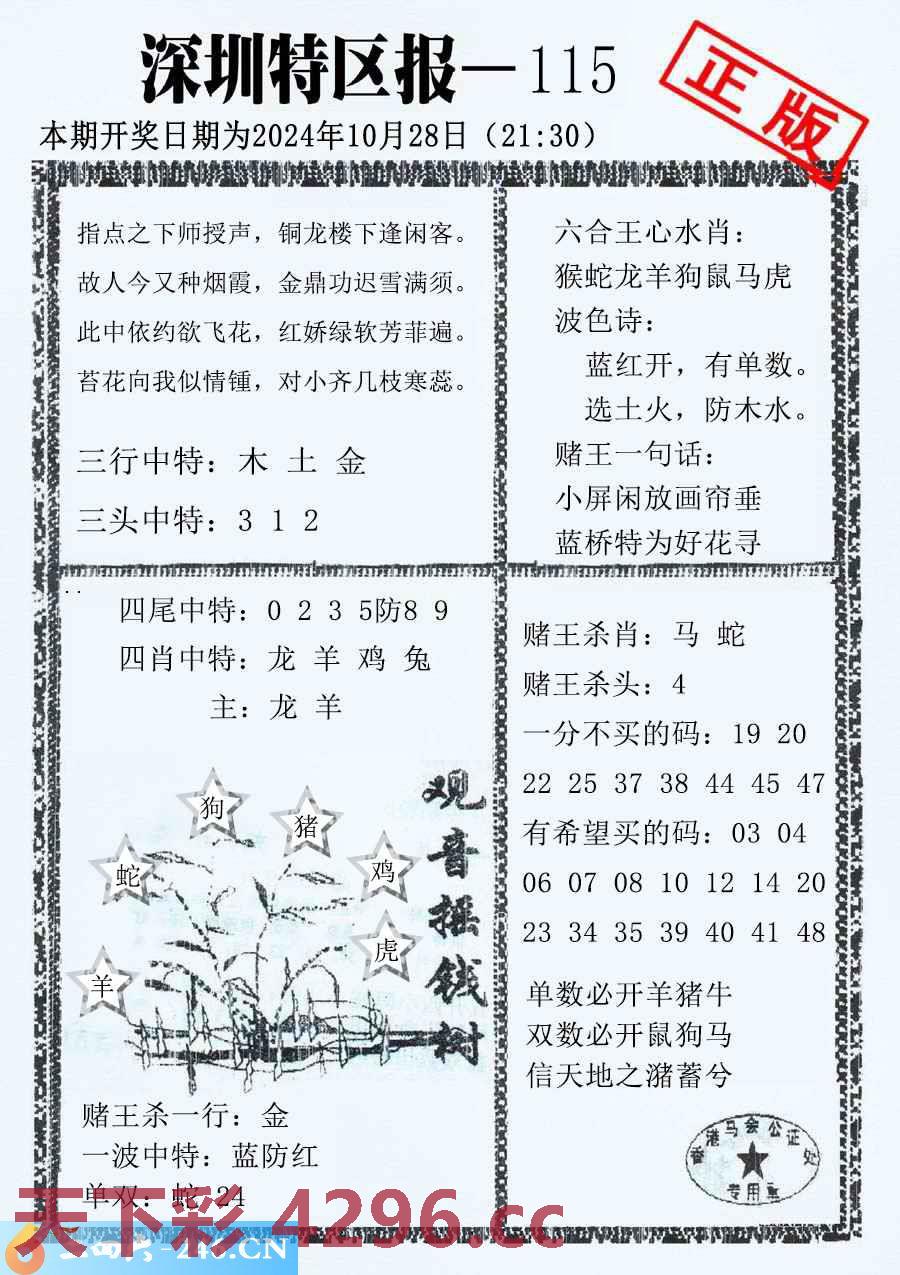 深圳特区报—115
正版
本期开奖日期为2024年10月28日（21:30）
指点之下师授声，铜龙楼下逢闲客。
故人今又种烟霞，金鼎功迟雪满须。
此中依约欲飞花，红娇绿软芳菲遍。
苔花向我似情锺，对小齐几枝寒蕊。
三行中特：木 土 金
三头中特：3 1 2
六合王心水肖：
猴蛇龙羊狗鼠马虎
波色诗：
蓝红开，有单数。
选土火，防木水。
赌王一句话：
小屏闲放画帘垂
蓝桥特为好花寻
四尾中特：0 2 3 5防8 9
四肖中特：龙 羊 鸡 兔
主：龙 羊
狗
猪
蛇
鸡
虎
羊
观音摇钱树
赌王杀一行：金
一波中特：蓝防红
单双：蛇 24
赌王杀肖：马 蛇
赌王杀头：4
一分不买的码：19 20
22 25 37 38 44 45 47
有希望买的码：03 04
06 07 08 10 12 14 20
23 34 35 39 40 41 48
单数必开羊猪牛
双数必开鼠狗马
信天地之潴蓄兮
香港马会公证处
专用章
天下彩 4296.cc
-246.CN